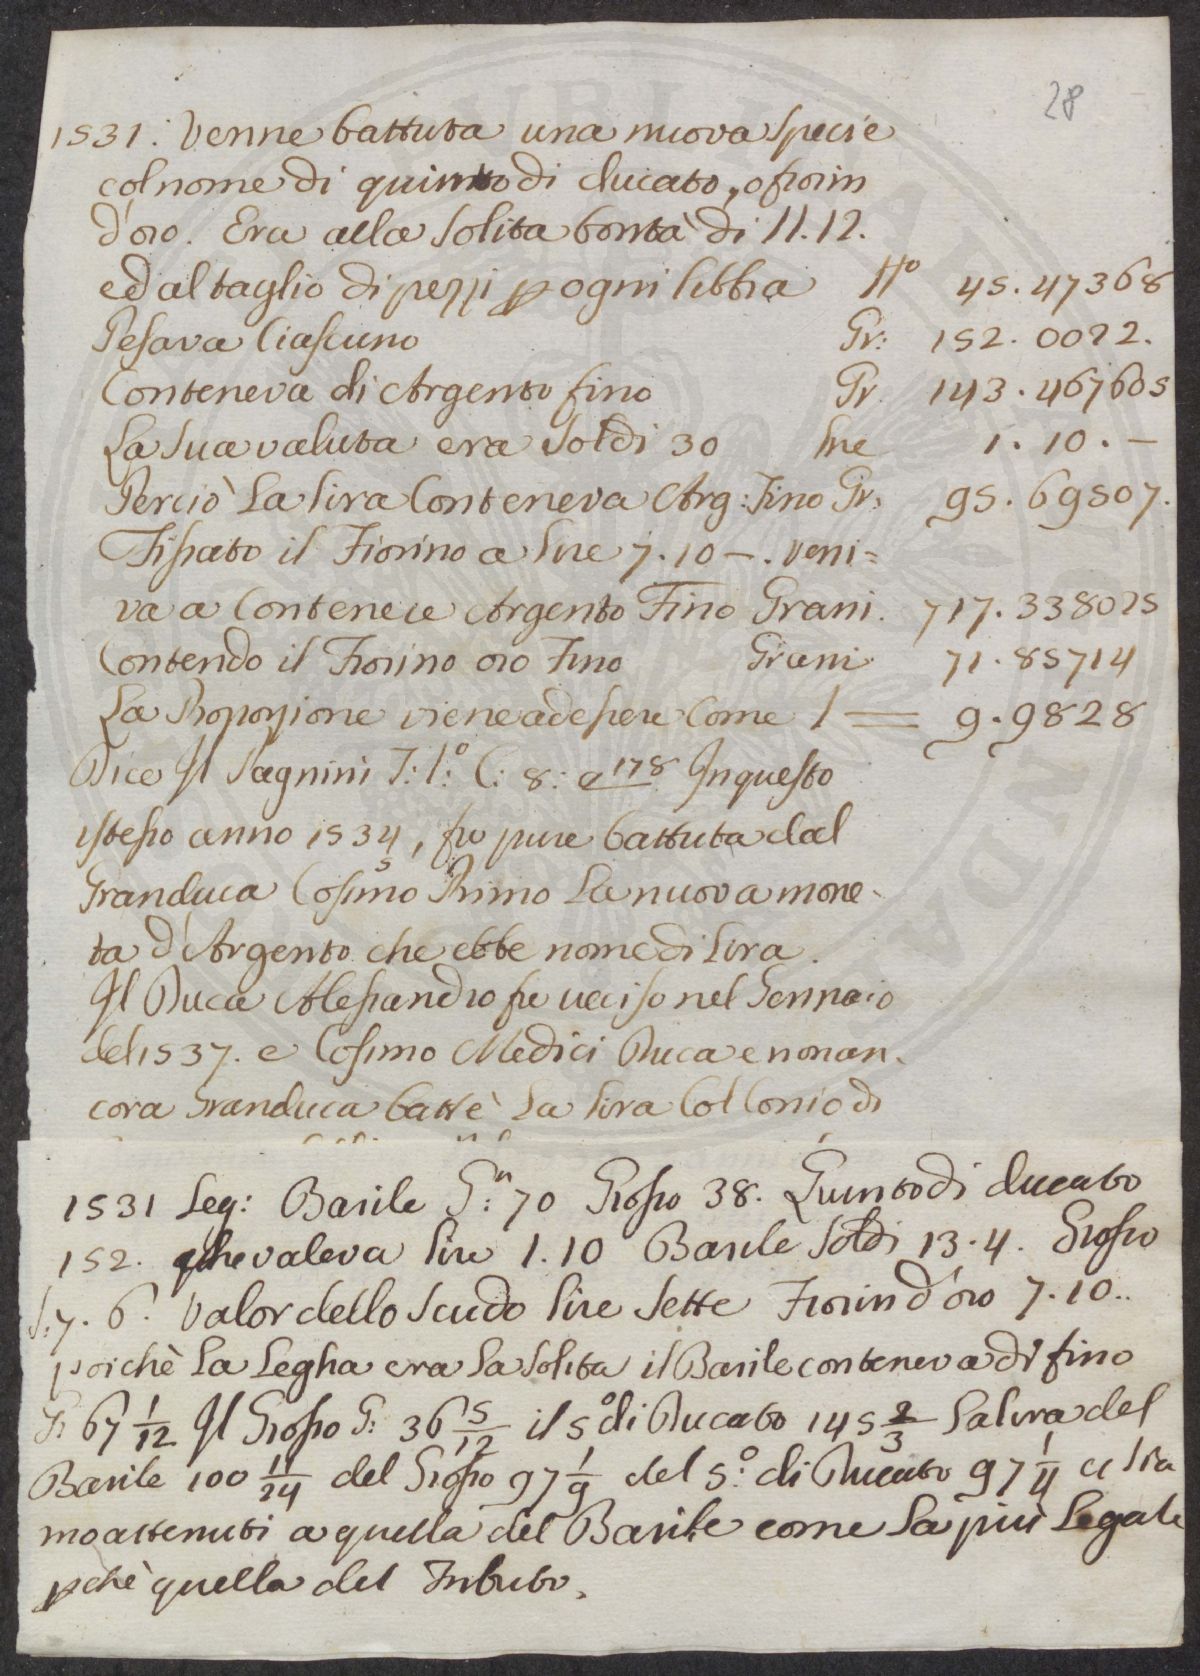 28
1531. Venne battuta una nuova specie
col nome di quinto di ducato, o fiorin
d'oro. Era alla solita bontà di 11.12.
ed al taglio di pezzi p ogni libbra No 45.47368
Pesava Ciascuno Gr: 152.0022.
Conteneva di Argento fino Gr. 143.467605
La sua valuta era soldi 30 lire 1.10.—
Perciò La lira Conteneva Arg: Fino Gr: 95.69507.
Fissato il Fiorino a lire 7.10—. veni=
va a Contenere Argento Fino Grani. 717.338025
Contendo il Fiorino oro Fino Grani 71.85714
La Proporzione viene ad essere Come 1 = 9.9828
Dice Il Pagnini T: 1:o C: 8: a 178 In questo
istesso anno 1534, fu pure battuta dal
5
Granduca Cosimo Primo La nuova mone-
ta d'Argento che ebbe nome di Lira.
Il Duca Alessandro fu ucciso nel Gennaio
del 1537. e Cosimo Medici Duca e non an-
cora Granduca battè La lira Col Conio di
1531 Leg: Barile G:n 70 Grosso 38. Quinto di ducato
152. che valeva lire 1.10 Barile soldi 13.4. Grosso
S. 7.6. Valor dello scudo lire sette Fiorin d'oro 7.10..
poichè La Legha era La solita il Barile conteneva di fino
G: 67 1/12 Il Grosso G: 36 5/12 il 5o di Ducato 145 2/3 La lira del
Barile 100 11/24 del Grosso 97 1/9 del 5:o di Ducato 97 1/4 ci sia
mo attenuti a quella del Barile come La più Legale
pchè quella del Tributo.